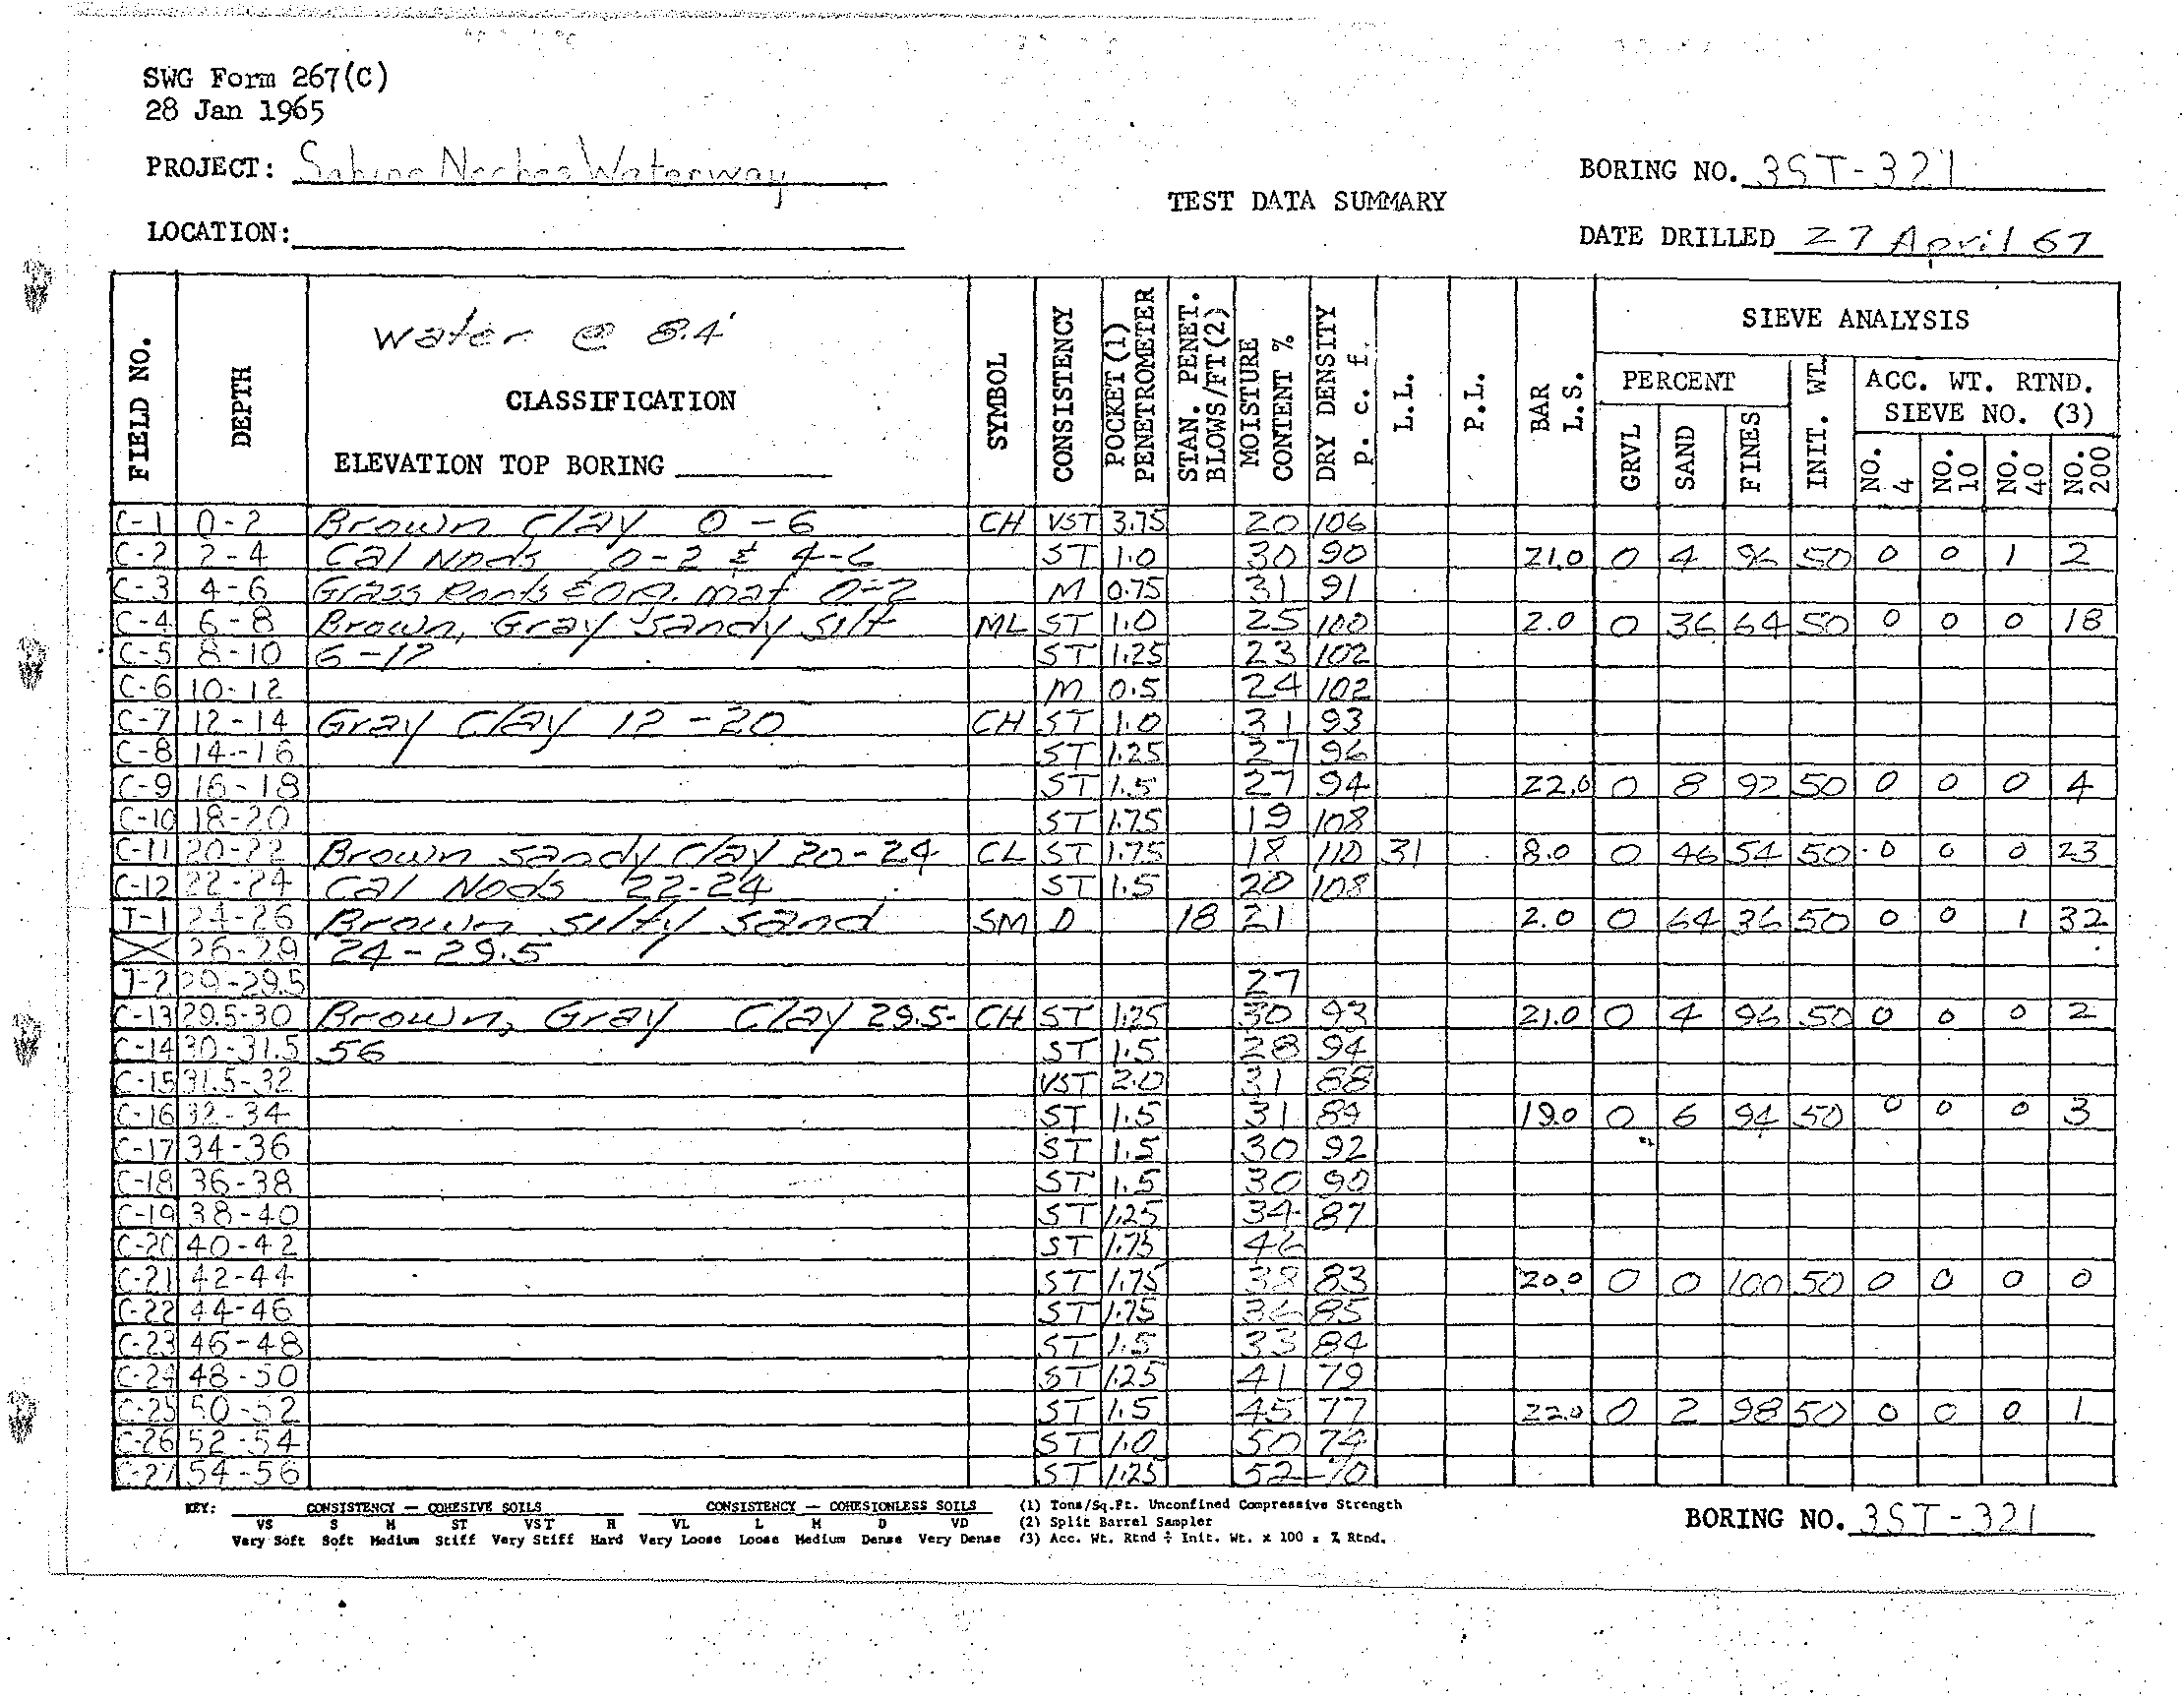 SWG Form 267(C)
28 Jan 1965
PROJECT: Sabine Neches Waterway
BORING NO. 3ST-321
TEST DATA SUMMARY
LOCATION:
DATE DRILLED 27 April 67
FIELD NO. DEPTH Water @ 8.4' CLASSIFICATION ELEVATION TOP BORING SYMBOL CONSISTENCY POCKET (1) PENETROMETER STAN. PENET. BLOWS/FT(2) MOISTURE CONTENT % DRY DENSITY p. c. f. L.L. P.L. BAR L.S. SIEVE ANALYSIS
PERCENT GRVL SAND FINES INIT. WT. ACC. WT. RTND. SIEVE NO. (3) NO. 4 NO. 10 NO. 40 NO. 200
C-1 0-2 Brown Clay 0-6 CH VST 3.75 20 106
C-2 2-4 Cal Nods 0-2 & 4-6 ST 1.0 30 90 21.0 0 4 96 50 0 0 1 2
C-3 4-6 Grass Roots & Org. mat 0-2 M 0.75 31 91
C-4 6-8 Brown, Gray Sandy Silt ML ST 1.0 25 100 2.0 0 36 64 50 0 0 0 18
C-5 8-10 6-12 ST 1.25 23 102
C-6 10-12 M 0.5 24 102
C-7 12-14 Gray Clay 12-20 CH ST 1.0 31 93
C-8 14-16 ST 1.25 27 96
C-9 16-18 ST 1.5 27 94 22.0 0 8 92 50 0 0 0 4
C-10 18-20 ST 1.75 19 108
C-11 20-22 Brown sandy clay 20-24 CL ST 1.75 18 110 31 8.0 0 46 54 50 0 0 0 23
C-12 22-24 Cal Nods 22-24 ST 1.5 20 108
J-1 24-26 Brown silty sand SM D 18 21 2.0 0 64 36 50 0 0 1 32
26-29 24-29.5
J-2 29-29.5 27
C-13 29.5-30 Brown, Gray Clay 29.5- CH ST 1.25 30 93 21.0 0 4 96 50 0 0 0 2
C-14 30-31.5 56 ST 1.5 28 94
C-15 31.5-32 VST 2.0 31 88
C-16 32-34 ST 1.5 31 89 19.0 0 6 94 50 0 0 0 3
C-17 34-36 ST 1.5 30 92
C-18 36-38 ST 1.5 30 90
C-19 38-40 ST 1.25 34 87
C-20 40-42 ST 1.75 46
C-21 42-44 ST 1.75 38 83 20.0 0 0 100 50 0 0 0 0
C-22 44-46 ST 1.75 36 85
C-23 46-48 ST 1.5 33 84
C-24 48-50 ST 1.25 41 79
C-25 50-52 ST 1.5 45 77 22.0 0 2 98 50 0 0 0 1
C-26 52-54 ST 1.0 50 74
C-27 54-56 ST 1.25 52 70
KEY: CONSISTENCY — COHESIVE SOILS CONSISTENCY — COHESIONLESS SOILS (1) Tons/Sq.Ft. Unconfined Compressive Strength
VS S M ST VST H VL L M D VD (2) Split Barrel Sampler
Very Soft Soft Medium Stiff Very Stiff Hard Very Loose Loose Medium Dense Very Dense (3) Acc. Wt. Rtnd ÷ Init. Wt. x 100 = % Rtnd.
BORING NO. 3ST-321